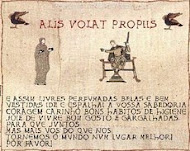 ALIS VOLAT PROPIIS
E ASSIM LIVRES PERFUMADAS BELAS E BEM
VESTIDAS IDE E ESPALHAI A VOSSA SABEDORIA
CORAGEM CARINHO BONS HABITOS DE HIGIENE
JOIE DE VIVRE BOM GOSTO E GARGALHADAS.
PARA QUE JUNTOS
MAS MAIS VOS DO QUE NOS
TORNEMOS O MUNDO NUM LUGAR MELHOR!
POR FAVOR!